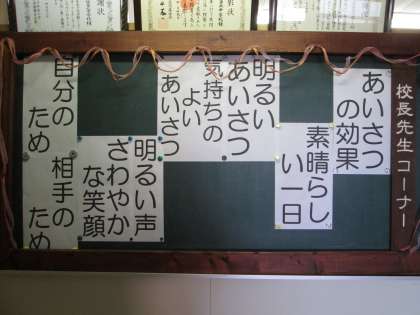 校長先生コーナー
あいさつ
の効果
素晴らし
い一日
明るい
あいさつ
気持ちの
よい
あいさつ
明るい声
さわやか
な笑顔
自分の
ため
相手の
ため